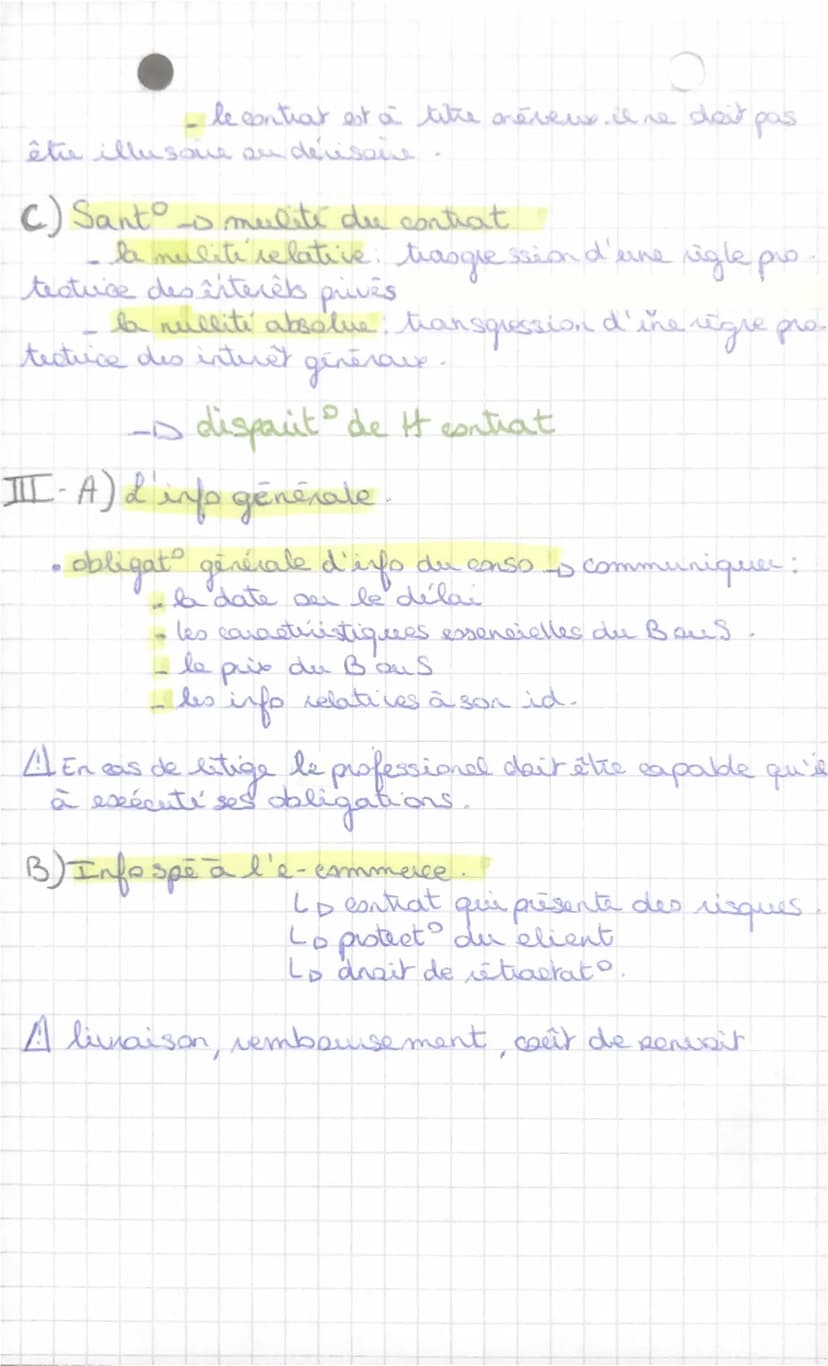 - le contrat est à titre onéreux. il ne doit pas
être illusoire ou dérisoire.
C) Sant° → nullité du contrat
- la nullité relative : trasgression d'une règle pro-
tectrice des intérêts privés
- la nullité absolue : transgression d'une règre pro-
tectrice des intérêt généraux.
→ disparit° de tt contrat
III - A) L'info générale.
• obligat° générale d'info du conso → communiquer :
- la date ou le délai
- les caractéristiques essencielles du B ou S.
- le prix du B ou S
- les info relatives à son id.
⚠ En cas de litige le professionel doit être capable qu'il
à exécuté ses obligations.
B) Info spé à l'e-commerce.
↳ contrat qui présente des risques.
↳ protect° du client
↳ droit de rétractat°.
⚠ livraison, remboursement, coût de renvoit